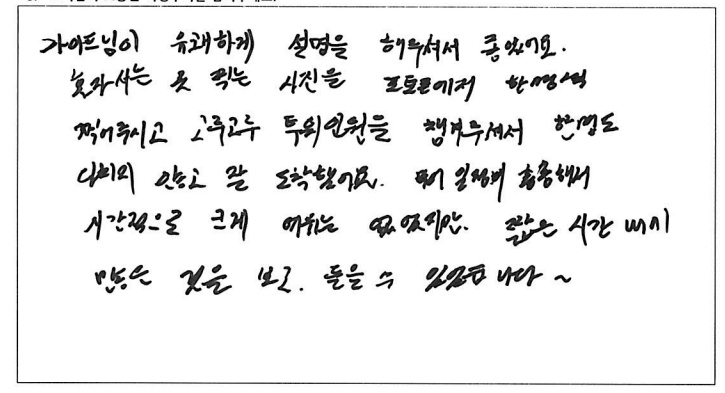 가이드님이 유쾌하게 설명을 해주셔서 좋았어요.
혼자서는 못 찍는 사진을 포토존에서 한명씩
찍어주시고 고루고루 투어인원을 챙겨주셔서 한명도
안하고 잘 도착했어요. 일정에
시간적으로 크게 여유는 없었지만. 짧은 시간 내에
많은 것을 보고. 들을 수 있었습니다 ~